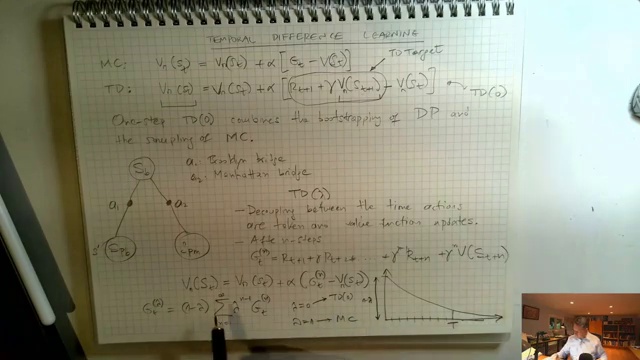 TEMPORAL DIFFERENCE LEARNING
MC: Vπ(St) = Vπ(St) + α [Gt − V(St)]
TD Target
TD: Vπ(St) = Vπ(St) + α [Rt+1 + γ Vπ(St+1) − Vπ(St)] TD(0)
One-step TD(0) combines the bootstrapping of DP and
the sampling of MC.
Sb
a1: Brooklyn bridge
a2: Manhattan bridge
a1
a2
TD(λ)
- Decoupling between the time actions
are taken and value function updates.
s'
- After n-steps
Gt(n) = Rt+1 + γ Rt+2 ... + γ Rt+n + γn V(St+n)
Vπ(St) = Vπ(St) + α (Gt(n) − Vπ(St))
Gt(λ) = (1−λ) Σ λn−1 Gt(n) λ=0 → TD(0)
λ=1 → MC
T